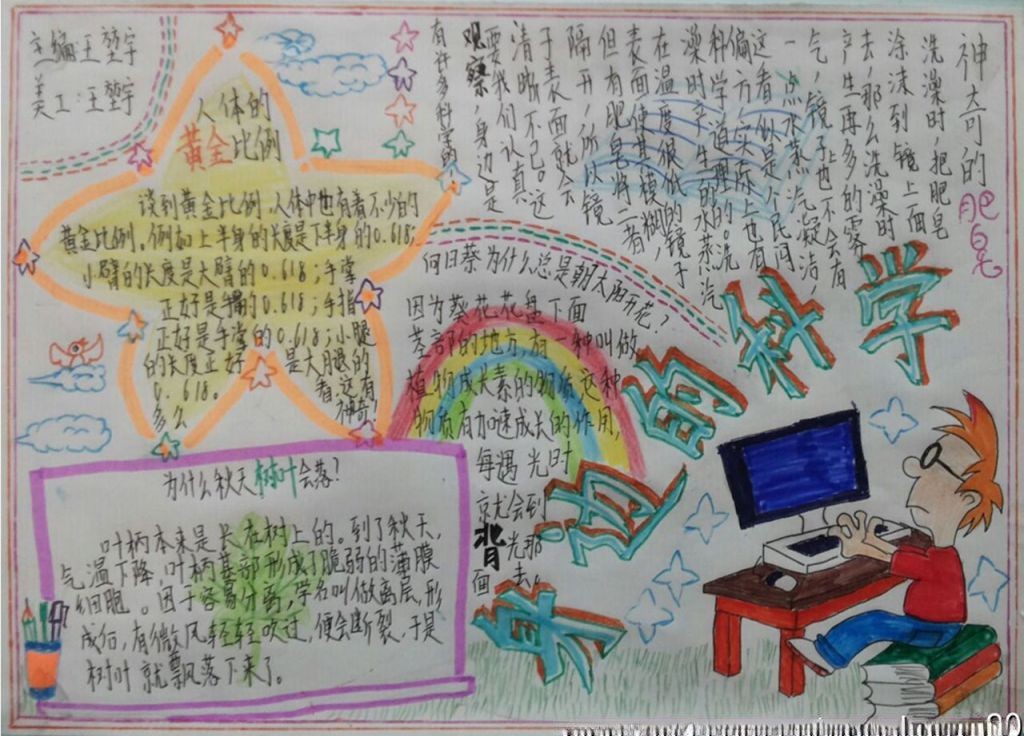 主编:王堃宇
美工:王堃宇
人体的
黄金比例
谈到黄金比例,人体中也有着不少的
黄金比例。例如上半身的长度是下半身的0.618;
小臂的长度是大臂的0.618;手掌
正好是手臂的0.618;手指
正好是手掌的0.618;小腿
的长度正好是大腿的
0.618。看,这有
多么神奇!
神奇的肥皂
洗澡时,把肥皂
涂沫到镜上面
去,那么洗澡时
产生再多的雾
气,镜子也不会有
一点水蒸汽凝洁,
这看似是个民间
偏方,实际上也有
科学道理的。洗
澡时产生的水蒸汽
在温度很低的镜子
表面使其模糊,
但有肥皂将二者
隔开,所以镜
子表面就会
清晰不已。这
要我们认真
观察,身边是
有许多科学的!
向日葵为什么总是朝太阳开花?
因为葵花花盘下面
茎部的地方,有一种叫做
植物成长素的物质,这种
物质有加速成长的作用,
每遇光时
就会到
背光那
面去。
身边的科学
为什么秋天树叶会落?
叶柄本来是长在树上的。到了秋天,
气温下降,叶柄基部形成了脆弱的薄膜
细胞。因于容易分离,学名叫做离层,形
成后,有微风轻轻吹过,便会断裂,于是
树叶就飘落下来了。